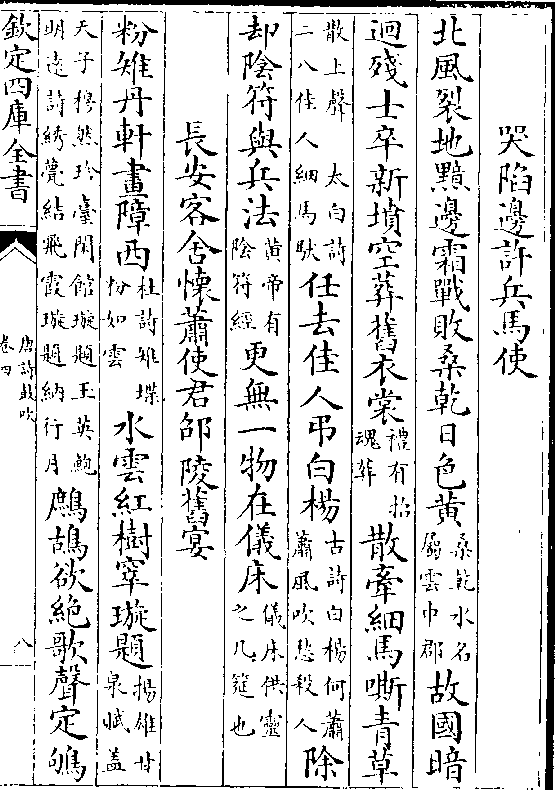 哭陷邊許兵馬使
北風裂地黯邊霜戰敗桑乾日色黄桑乾水名屬雲中郡故國暗
迴殘士卒新墳空葬舊衣裳禮有招魂葬散牽細馬嘶青草
散上聲 太白詩二八佳人細馬馱任去佳人弔白楊古詩白楊何蕭蕭風吹愁殺人除
却陰符與兵法黄帝有陰符經更無一物在儀床儀床供靈之几筵也
長安客舍懷蕭使君邵陵舊宴
粉雉丹軒畫障西杜詩雉堞粉如雲水雲紅樹窣璇題揚雄甘泉賦蓋
天子穆然珍臺閒館璇題玉英鮑明遠詩綉甍結飛霞璇題納行月鷓鴣欲絶歌聲定鴝
欽定四庫全書
唐詩鼓吹
卷四
八